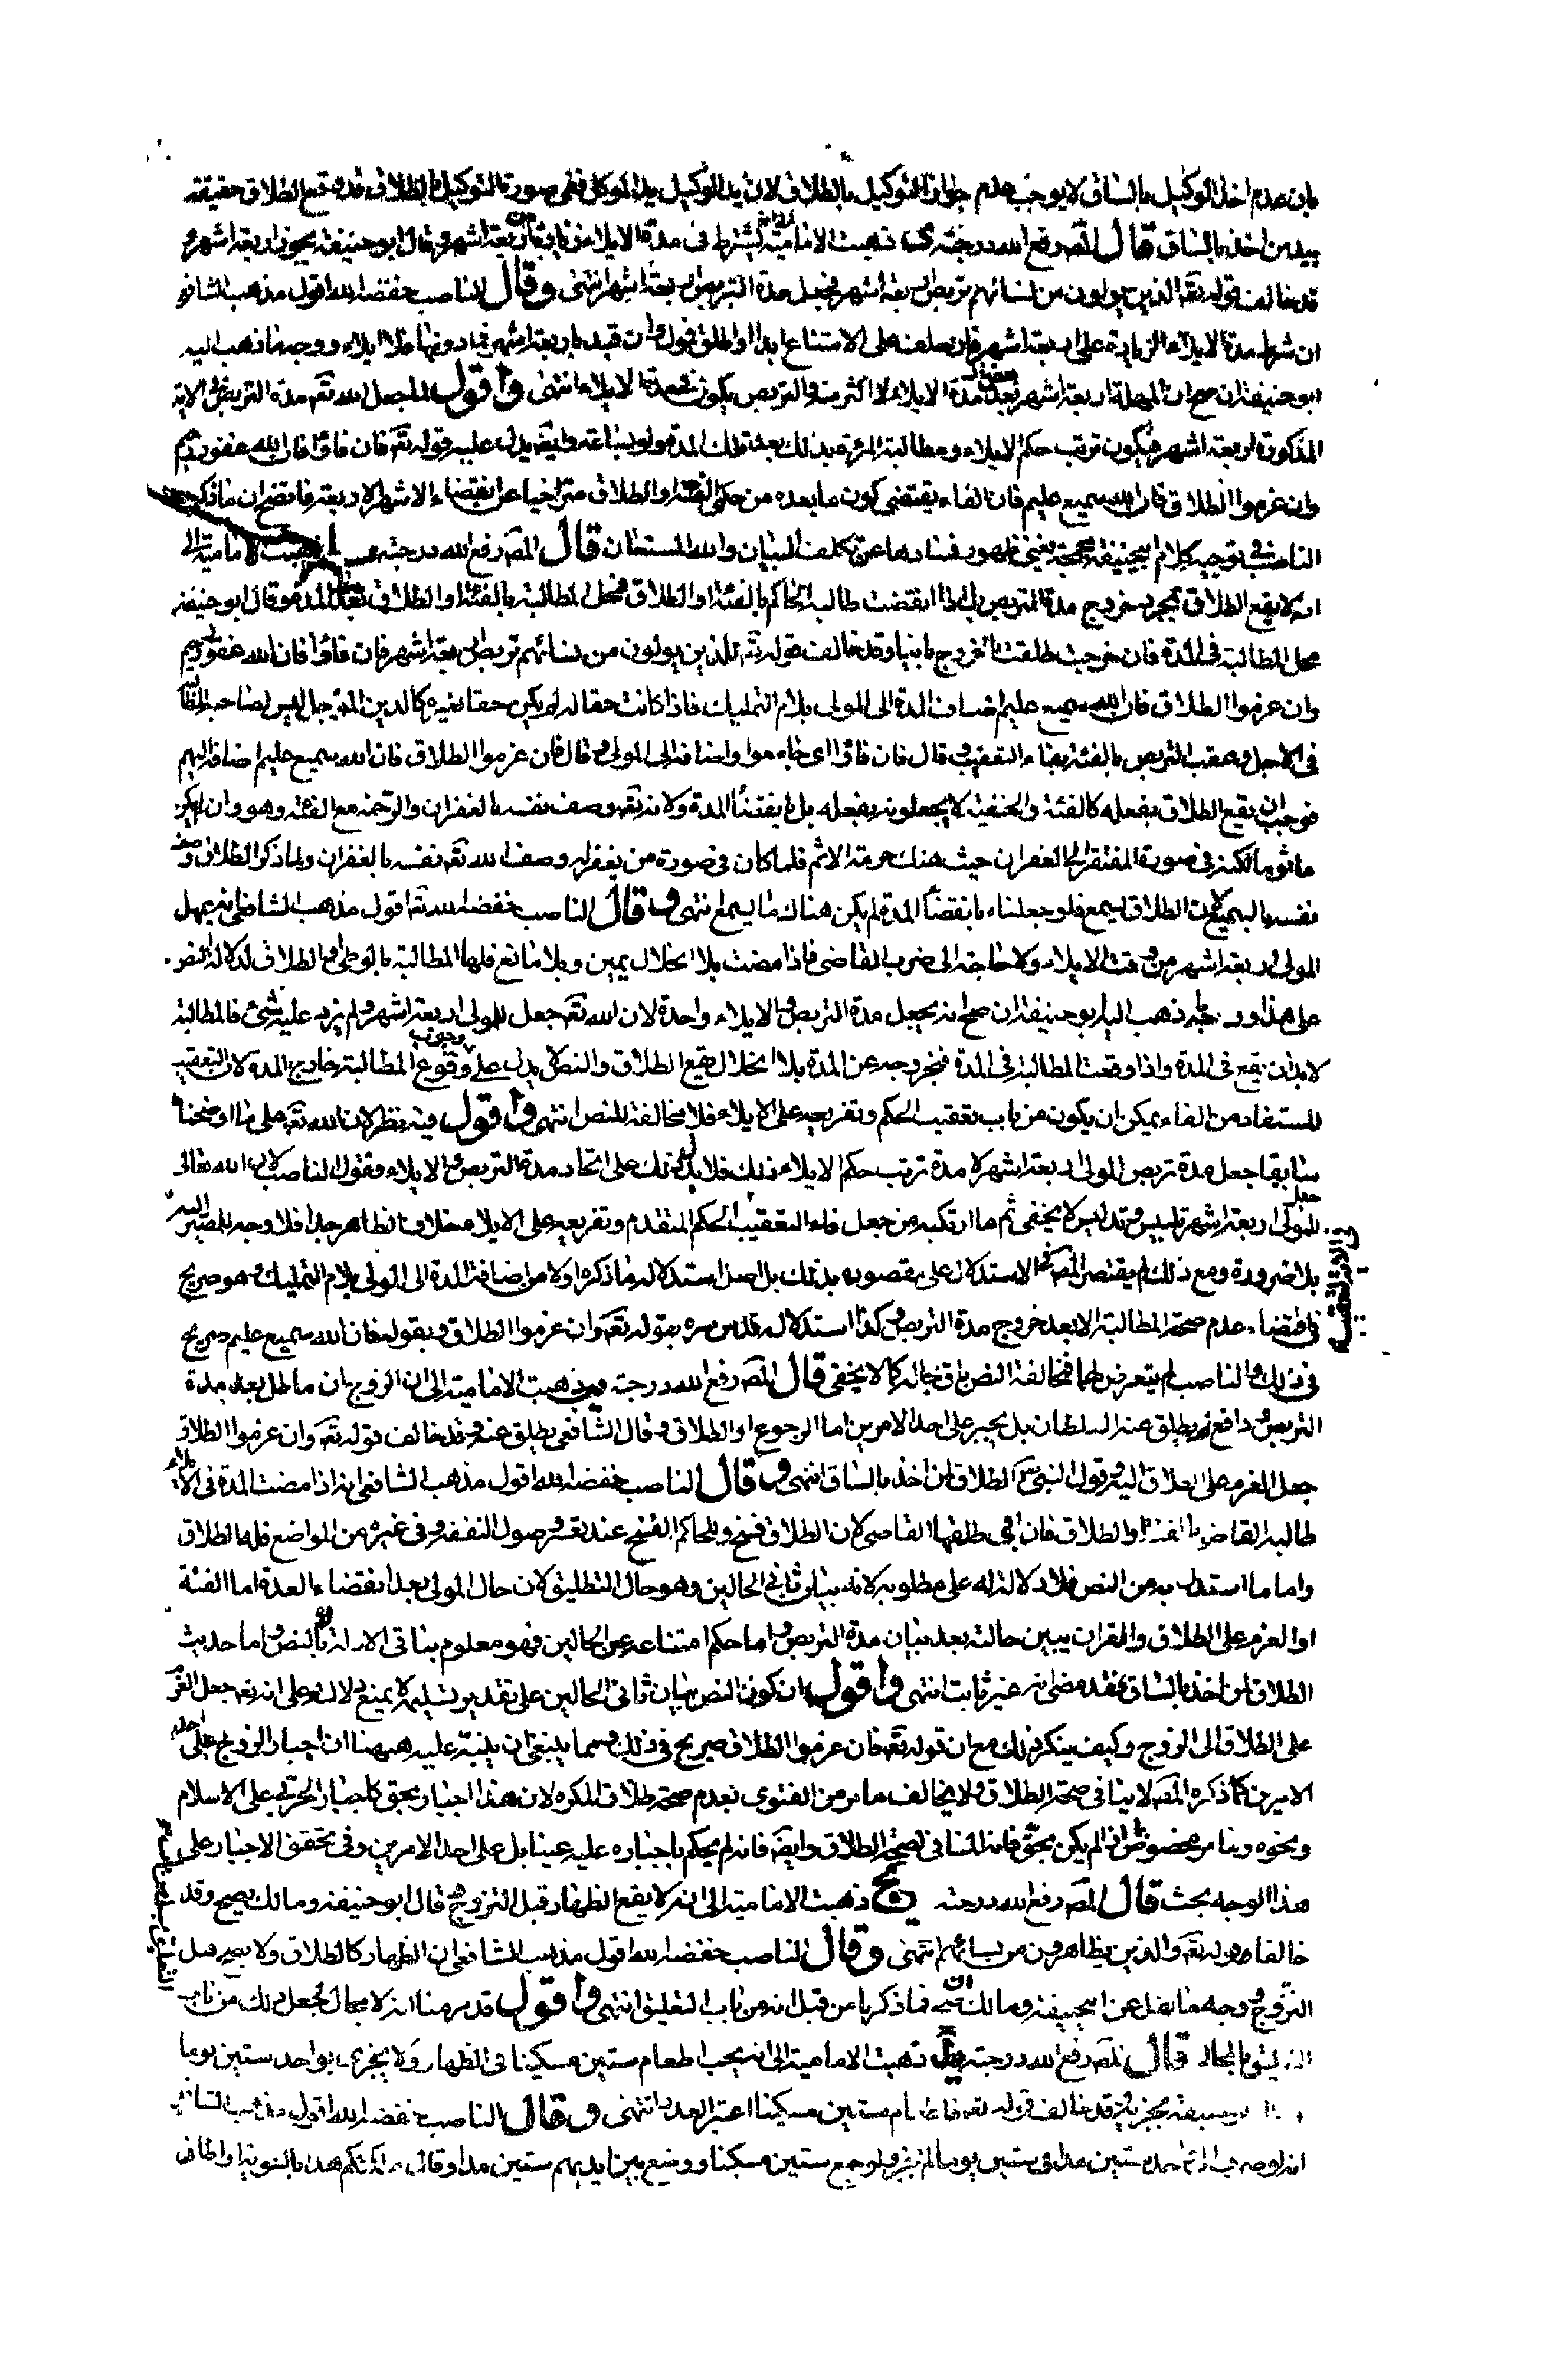 بان عدم اخذ الوكيل بالساق لا يوجب عدم جواز التوكيل بالطلاق لان يد الوكيل يد الموكل ففى صورة التوكيل بالطلاق قد وقع الطلاق حقيقة
بيد من اخذ بالساق قال المص رفع الله درجته ذهبت الامامية الى انه يشترط فى مدة الايلاء من اربعة اشهر وقال ابو حنيفة يجوز اربعة اشهر و
قد خالف قوله تعه الذين يولون من نسائهم تربص اربعة اشهر فجعل مدة التربص اربعة اشهر انتهى وقال الناصب خفضه الله اقول مذهب الشافعى
ان شرط مدة الايلاء الزيادة على اربعة اشهر فان حلف على الامتناع ابدا او اطلق فمول وان قيد باربعة اشهر فما دونها فلا ايلاء ووجه ما ذهب اليه
ابو حنيفة ان صح ان المهلة اربعة اشهر بعد مدة الايلاء لا اكثر منه والتربص يكون مدة الايلاء انتهى واقول لما جعل الله تعه مدة التربص فى الاية
المذكورة اربعة اشهر فيكون ترتب حكم الايلاء ومطالبة المرءة بذلك بعد تلك المدة ولو بساعة وايضه يدل عليه قوله تعه فان فاؤا فان الله غفور رحيم
وان عزموا الطلاق فان الله سميع عليم فان الفاء يقتضى كون ما بعده من حكم الفئة او الطلاق متراخيا عن انقضاء الاشهر الاربعة فاتضح ان ما ذكره
الناصب فى توجيه كلام ابيحنيفة يغنى ظهور فسادها عن تكلف البيان والله المستعان قال المص رفع الله درجته ذهبت الامامية الى
انه لا يقع الطلاق بمجرد خروج مدة التربص بل اذا انقضت طالبه الحاكم بالفئة او الطلاق فمحل المطالبة بالفئة او الطلاق بعد المدة وقال ابو حنيفة
محل المطالبة فى المدة فان خرجت طلقت بالخروج باينا وقد خالف قوله تعه للذين يولون من نسائهم تربص اربعة اشهر فان فاؤا فان الله غفور رحيم
وان عزموا الطلاق فان الله سميع عليم اضاف المدة الى المولى بلام التمليك فاذا كانت حقا له لم يكن حقا لغيره كالدين المؤجل ليس لصاحبه المطالبة
فى الاجل وعقب التربص بالفئة بفاء التعقيب وقال فان فاؤا اى جامعوا واضافه الى المولى وقال فان عزموا الطلاق فان الله سميع عليم اضافه اليهم
فوجب ان يقع الطلاق بفعله كالفئة والحنفية لا يجعلونه بفعله بل بانقضاء المدة ولانه تعه وصف نفسه بالغفران والرحمة مع الفئة وهو وان لم يكن
ماثوما لكنه فى صورة المفتقر الى الغفران حيث هتك حرمة الاثم فلما كان فى صورة من يغفر له وصف الله تعه نفسه بالغفران ولما ذكر الطلاق وصف
نفسه بالسميع لان الطلاق يسمع فلو جعلناه بانقضاء المدة لم يكن هناك ما يسمع انتهى وقال الناصب خفضه الله تعه اقول مذهب الشافعى انه يمهل
المولى اربعة اشهر من وقت الايلاء ولا حاجة الى ضرب القاضى فاذا مضت بلا انحلال يمين وبلا مانع فلها المطالبة بالوطى او الطلاق لدلالة النص
على هذا ووجه ما ذهب اليه ابو حنيفة ان صح انه يجعل مدة التربص والايلاء واحدة لان الله تعه جعل للمولى اربعة اشهر ولم يزد عليه شئ فالمطالبة
لا بد ان يقع فى المدة واذا وقعت المطالبة فى المدة فبخروجه عن المدة بلا انحلال يقع الطلاق والنص لا يدل على وجوب وقوع المطالبة خارج المدة لان التعقيب
المستفاد من الفاء يمكن ان يكون من باب تعقيب الحكم وتفريعه على الايلاء فلا مخالفة للنص انتهى واقول فيه نظر لان الله تعه على ما اوضحنا
سابقا جعل مدة تربص المولى اربعة اشهر لا مدة ترتب حكم الايلاء ذلك فلا يدل ذلك على اتحاد مدة التربص والايلاء وقول الناصب لان الله تعالى
جعل للمولى اربعة اشهر تلبيس وتدليس لا يخفى ثم ما ارتكبه من جعل فاء التعقيب الحكم المتقدم وتفريعه على الايلاء خلاف الظاهر جدا فلا وجه للمصير اليه
بلا ضرورة ومع ذلك لم يقتصر المص فى الاستدلال على مقصوده بذلك بل اصل استدلاله ما ذكره اولا من اضافة المدة الى المولى بلام التمليك وهو صريح
فى اقتضاء عدم صحة المطالبة الا بعد خروج مدة التربص وكذا استدلاله قدس سره بقوله تعه وان عزموا الطلاق وبقوله فان الله سميع عليم صريح
فى ذلك والناصب لم يتعرض لهما فمخالفة النص باق بحاله كما لا يخفى قال المص رفع الله درجته ذهبت الامامية الى ان الزوج ان ماطل بعد مدة
التربص ودافع لم يطلق عنه السلطان بل يجبر على احد الامرين اما الرجوع او الطلاق وقال الشافعى يطلق عنه وقد خالف قوله تعه وان عزموا الطلاق
جعل العزم على الطلاق اليه وقول النبى ص الطلاق لمن اخذ بالساق انتهى وقال الناصب خفضه الله اقول مذهب الشافعى انه اذا مضت المدة فى الايلاء
طالبه القاضى بالفئة او الطلاق فان ابى طلقها القاضى لان الطلاق فسخ وللحاكم الفسخ عند تعذر وصول النفقة وفى غيره من المواضع فله الطلاق
واما ما استدل به من النص فلا دلالة له على مطلوبه لانه بيان ثانى الحالين وهو حال التطليق لان حال المولى بعد انقضاء العدة اما الفئة
او العزم على الطلاق والقران يبين حالته بعد بيان مدة التربص واما حكم امتناعه عن الحالين فهو معلوم بباقى الادلة لا بالنص واما حديث
الطلاق لمن اخذ بالساق فقد مضى انه غير ثابت انتهى واقول ان كون النص بيان ثانى الحالين على تقدير تسليمه لا يمنع دلالته على انه تعه جعل العزم
على الطلاق الى الزوج وكيف ينكر ذلك مع ان قوله تعه فان عزموا الطلاق صريح فى ذلك ومما ينبغى ان ينبه عليه ههنا ان اجبار الزوج على احد
الامرين كما ذكره المص لا ينافى صحة الطلاق ولا يخالف ما مر من الفتوى بعدم صحة طلاق المكره لان هذا اجبار بحق كاجبار الحربى على الاسلام
ونحوه وما مر مخصوص بما اذا لم يكن بحق فانه المنافى لصحة الطلاق وايضه فانه لم يحكم باجباره عليه عينا بل على احد الامرين وفى تحقق الاجبار على
هذا الوجه بحث قال المص رفع الله درجته يج ذهبت الامامية الى انه لا يقع الظهار قبل التزويج وقال ابو حنيفة ومالك يصح وقد
خالفا قوله تعه والذين يظاهرون من نسائهم انتهى وقال الناصب خفضه الله اقول مذهب الشافعى ان الظهار كالطلاق ولا يصح قبل
التزوج ووجه ما نقل عن ابيحنيفة ومالك ان صح فما ذكرنا من قبل انه من باب التعليق انتهى واقول قد مر منا انه لا مجال لجعل ذلك من باب
التعليق بالمحال قال المص رفع الله درجته يد ذهبت الامامية الى انه يجب اطعام ستين مسكينا فى الظهار ولا يجزى بواحد ستين يوما
وقال ابو حنيفة يجزيه وقد خالف قوله تعه فاطعام ستين مسكينا اعتبر العدد انتهى وقال الناصب خفضه الله اقول مذهب الشافعى
ستين مدا فى ستين يوما لم يجز ولو جمع ستين مسكينا ووضع بين ايديهم ستين مدا وقال ملكتكم هذا بالسوية او اطلق